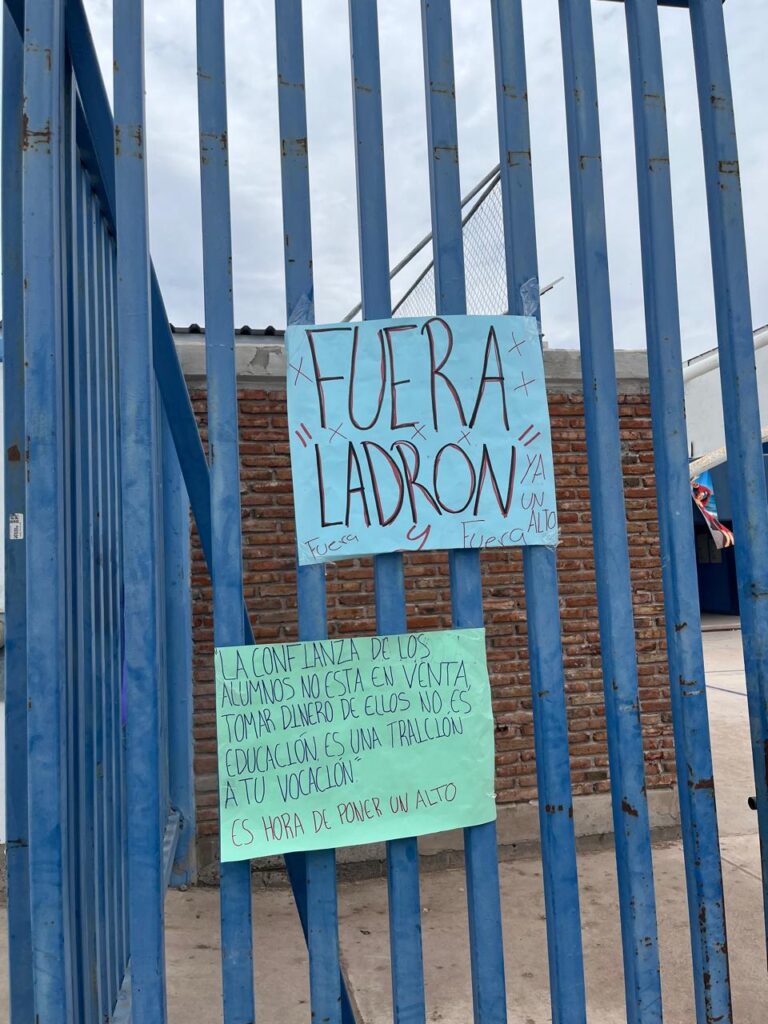 FUERA
"LADRÓN"
YA
UN
ALTO
Fuera y Fuera
LA CONFIANZA DE LOS
ALUMNOS NO ESTA EN VENTA,
TOMAR DINERO DE ELLOS NO ES
EDUCACIÓN, ES UNA TRAICIÓN
A TU VOCACIÓN"
ES HORA DE PONER UN ALTO